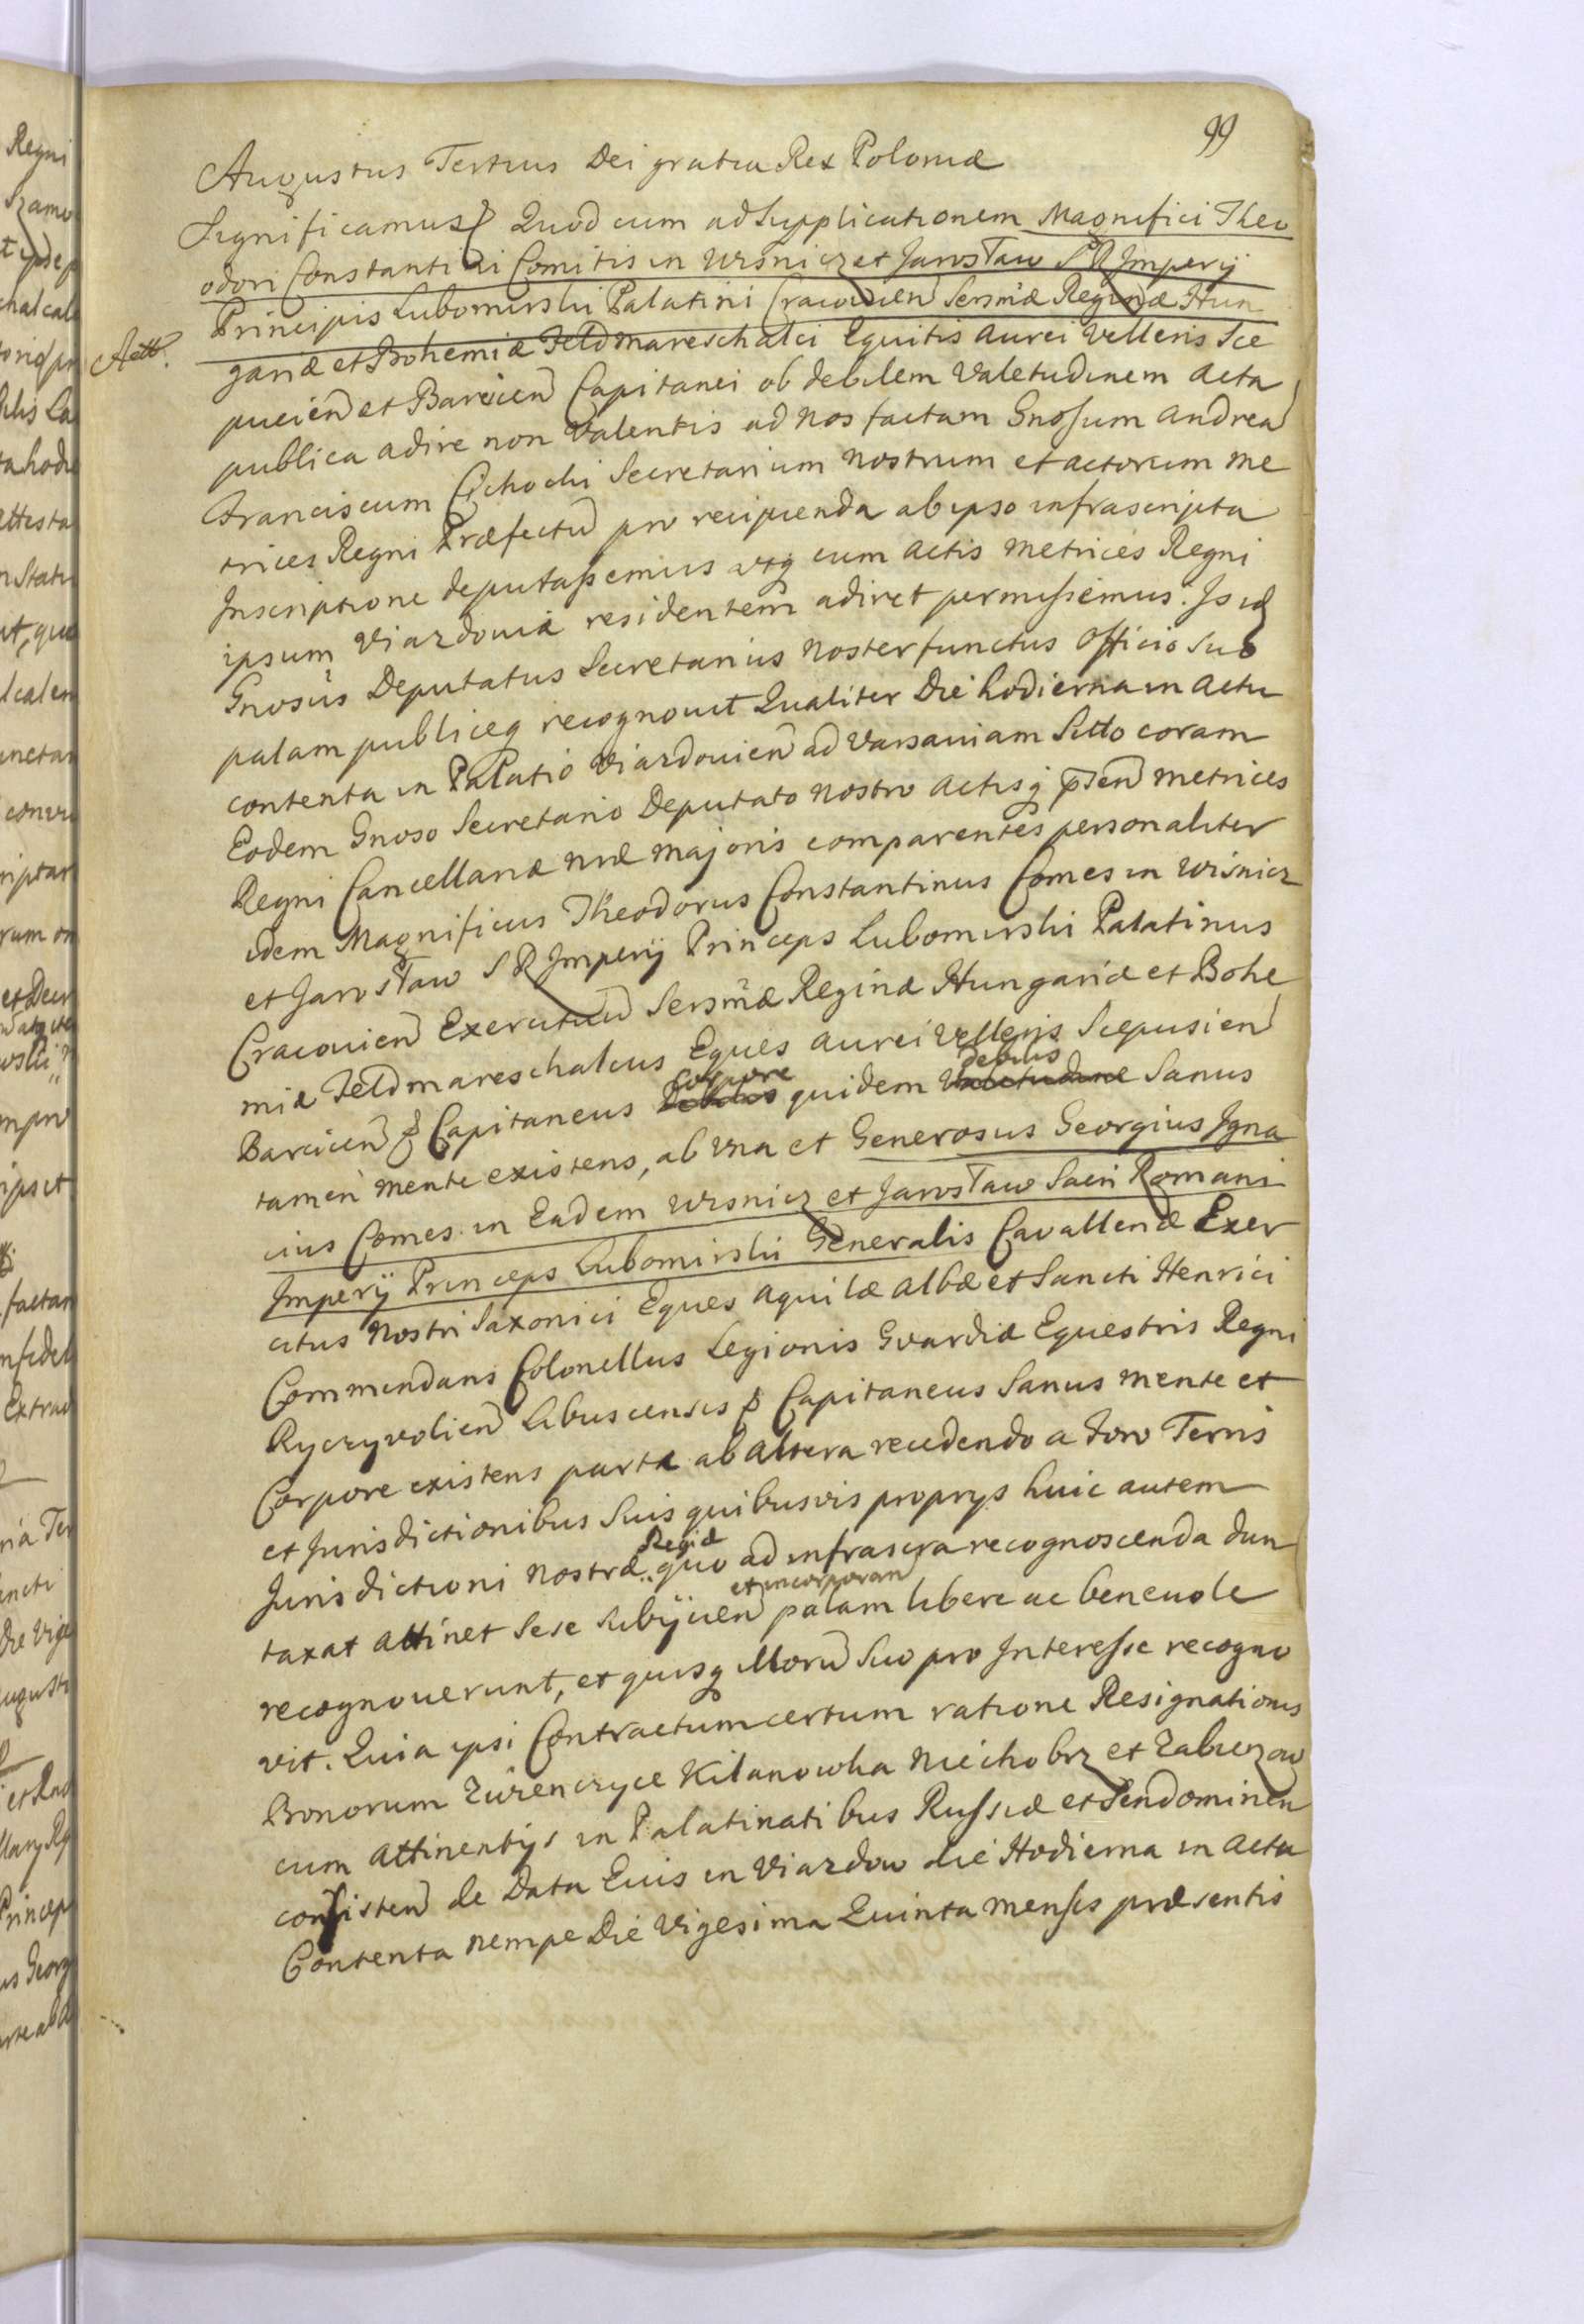 99
Augustus Tertius Dei gratia Rex Poloniæ
Significamus Quod cum ad supplicationem Magnifici Theo
odori Constantini Comitis in Wiśnicz et Jarosław S R Imperÿ
Principis Lubomirski Palatini Cracovien Sersmæ Reginæ Hun
Actb.
gariæ et Bohemiæ Feldmareschalci Equitis Aurei Velleris Sce
pucien et Barcicen Capitanei ob debilem Valetudinem Acta
publica adire non Valentis ad nos factam Gnosum Andrea
Franciscum Cichocki Secretarium Nostrum et actorum Me
trices Regni Præfectu pro recipienda ab ipso infrascripta
Inscriptione deputassemus utq cum Actis Metrices Regni
ipsum Viazdoviæ residentem adiret permissemus. Is id
Gnosus Deputatus Secretarius Noster functus Officio suo
palam publiceq recognovit Qualiter Die hodierna in Actu
contenta in Palatio Viazdovien ad Varsaviam Sitto coram
Eodem Gnoso Secretario Deputato Nostro Actisq pten Metrices
Regni Cancellariæ Nræ Majoris comparentes personaliter
idem Magnificus Theodorus Constantinus Comes in Wiśnicz
et Jarosław S R Imperÿ Princeps Lubomirski Palatinus
Cracovien Exercituu Sersmæ Reginæ Hungariæ et Bohe
miæ Feldmareschalcus Eques Aurei Velleris Scepusien
Barcicen Capitaneus Debilis Corpore quidem Valetudine debilis Sanus
tamen mente existens, ab Vna et Generosus Georgius Igna
cius Comes in Eadem Wisnicz et Jarosław Sacri Romani
Imperÿ Princeps Lubomirski Generalis Cavalleriæ Exer
citus Nostri Saxonici Eques Aquilæ Albæ et Sancti Henrici
Commendans Colonellus Legionis Gvardiæ Equestris Regni
Ryczyvolien Libuscensis Capitaneus Sanus mente et
Corpore existens parte ab Altera recedendo a Foro Terris
et Jurisdictionibus Suis quibusvis proprys huic autem
Jurisdictioni Nostræ Regiæ quo ad infrascra recognoscenda dun
taxat Attinet Sese Subÿcien et incorporan palam libere ac benevole
recognoverunt, et quisq illoru Suo pro Interesse recogno
vit. Quia ipsi Contractum certum ratione Resignationis
Bonorum Zürenczyce Kilanowka Niechobrz et Zabierzow
cum Attinentÿs in Palatinatibus Russiæ et Sendomirien
consisten de Data Eius in Viazdow die Hodierna in Actu
Contenta nempe Die Vigesima Quinta Mensis præsentis